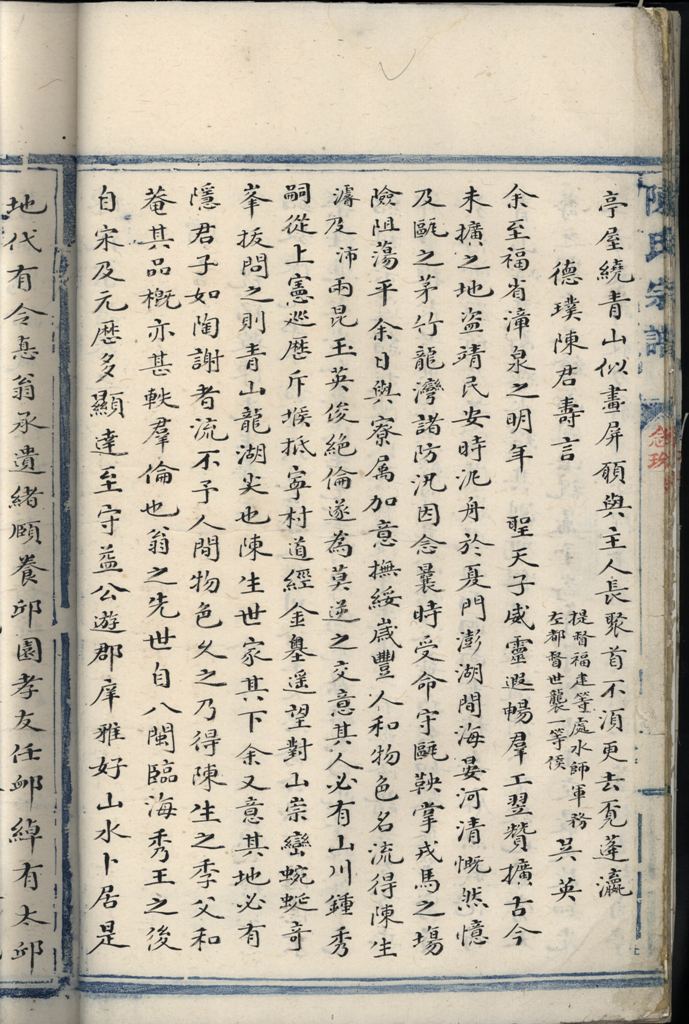 陳氏宗譜
亭屋繞青山似畫屏願與主人長聚首不須更去覔蓬瀛
德璞陳君壽言
提督福建等處水師軍務
左都督世襲一等侯
吳英
余至福省漳泉之明年 聖天子威靈遐暢羣工翌贊擴古今
未擴之地盜靖民安時汎舟於夏門澎湖間海晏河清慨然憶
及甌之茅竹龍灣諸防汛因念曩時受命守甌鞅掌戎馬之場
險阻蕩平余日與寮属加意撫綏歲豐人和物色名流得陳生
濬及沛兩昆玉英俊絕倫遂為莫逆之交意其人必有山川鍾秀
嗣從上憲巡歷斥堠抵寧村道經金墨遥望對山崇巒蜿蜒奇
峯拔問之則青山龍湖尖也陳生世家其下余又意其地必有
隱君子如陶謝者流不予人間物色久之乃得陳生之季父和
菴其品概亦甚軼羣倫也翁之先世自八閩臨海秀王之後
自宋及元歷多顯達至守益公遊郡庠雅好山水卜居是
地代有令惪翁承遺緒頤養邱園孝友任卹綽有太邱